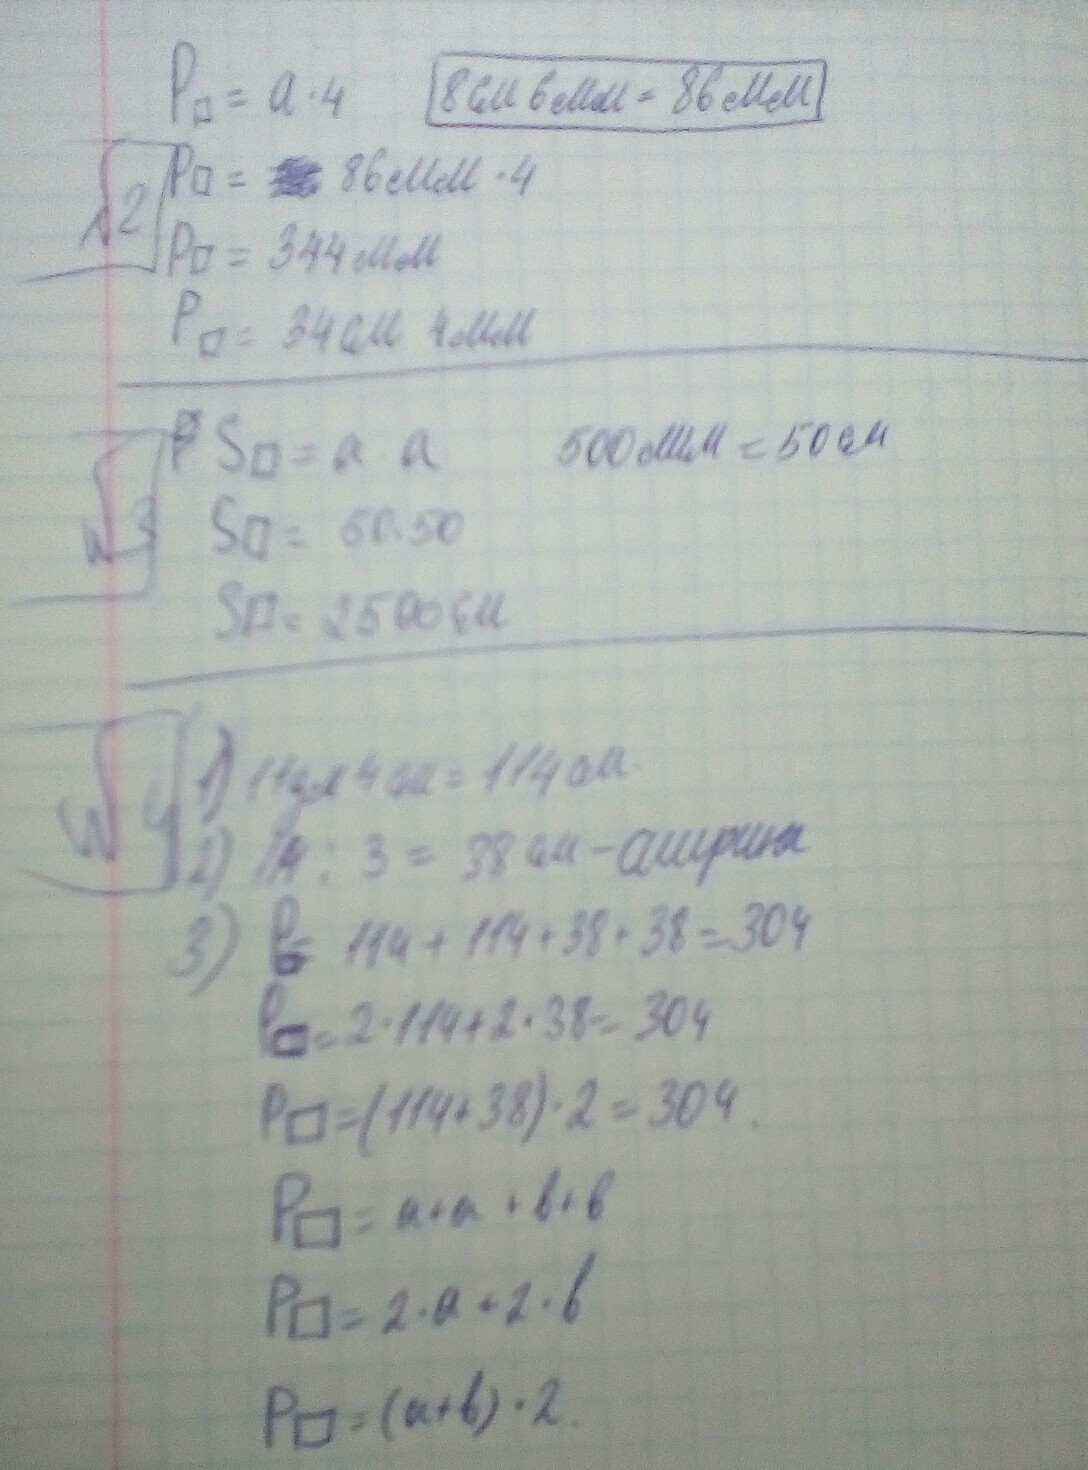 P□ = a·4 8см 6мм = 86мм
№2 P□ = 86мм·4
P□ = 344мм
P□ = 34см 4мм
№3 S□ = a·a 500мм = 50см
S□ = 50·50
S□ = 2500см
№4 1) 11дм 4см = 114см
2) : 3 = 38см - ширина
3) P□ = 114+114+38+38=304
P□ = 2·114+2·38= 304
P□ = (114+38)·2 = 304.
P□ = a+a+b+b
P□ = 2·a+2·b
P□ = (a+b)·2.